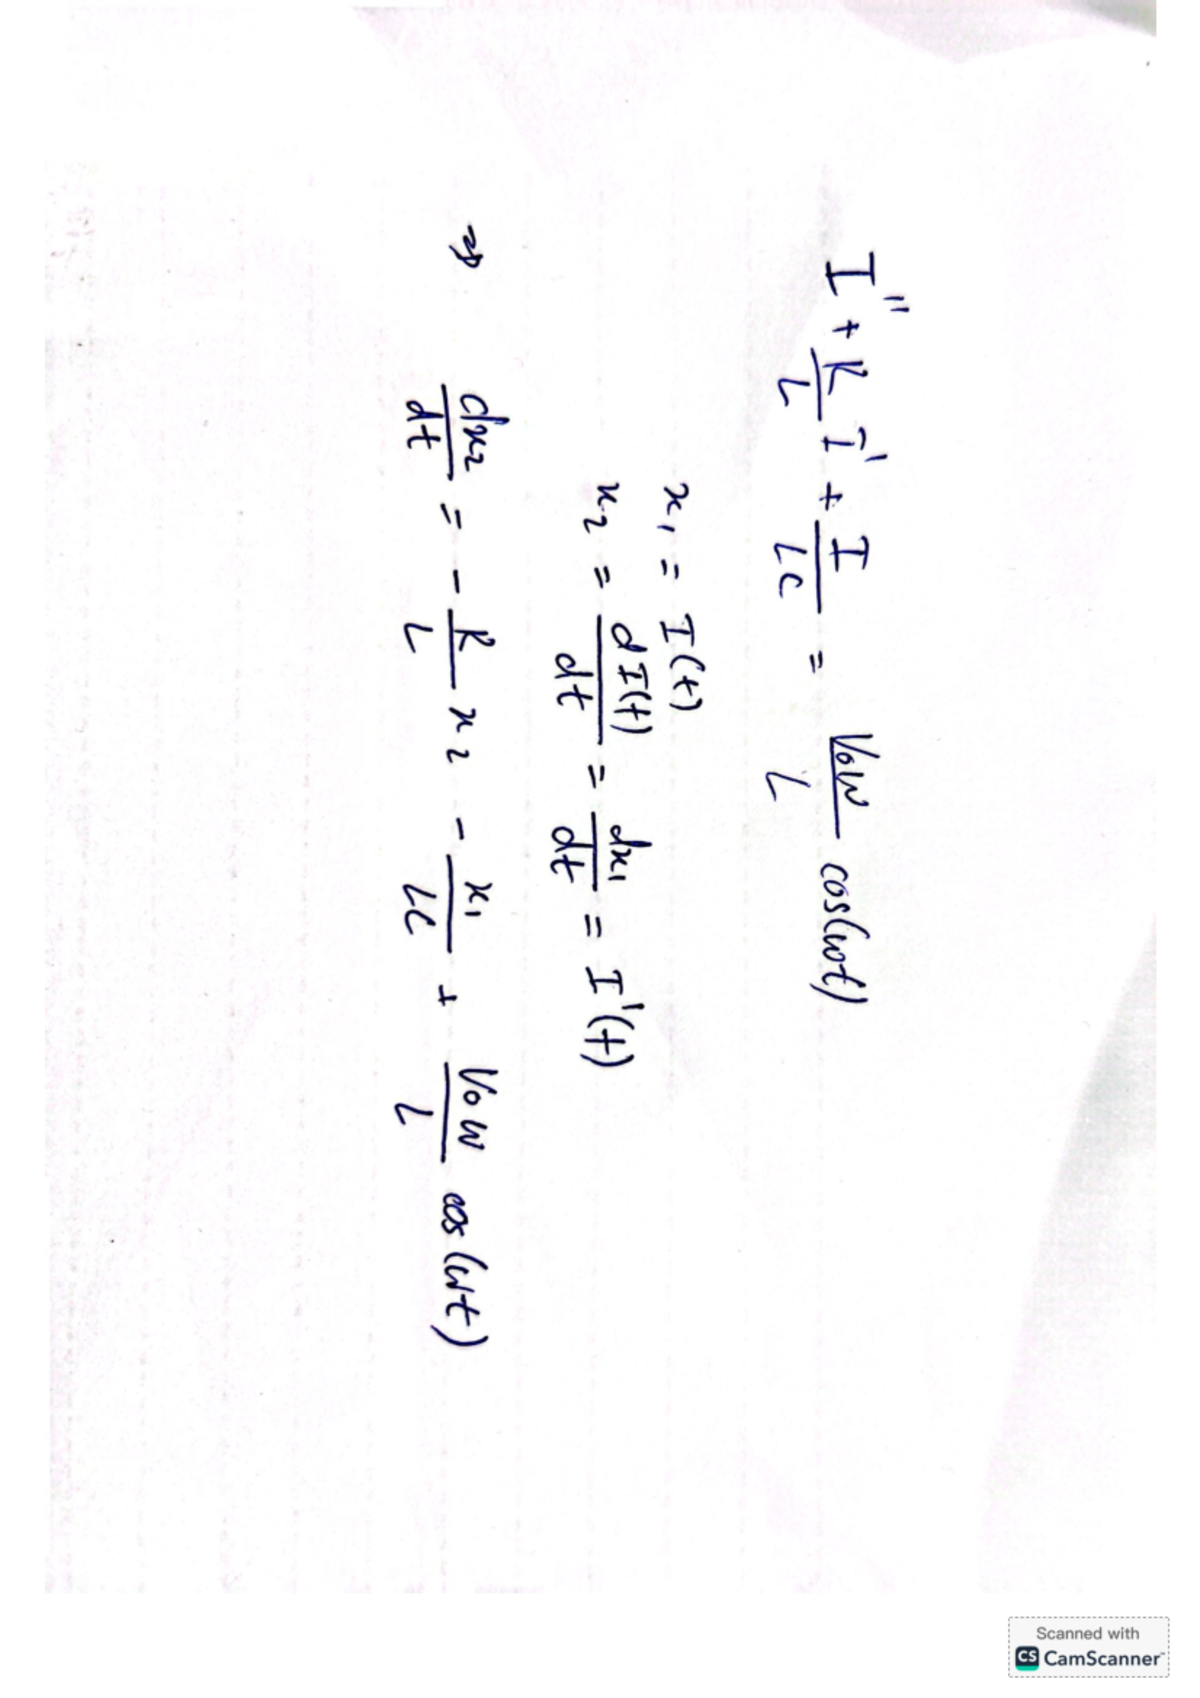 I'' + R/L I' + I/LC = V₀ω/L cos(ωt)
x₁ = I(t)
x₂ = dI(t)/dt = dx₁/dt = I'(t)
⇒ dx₂/dt = - R/L x₂ - x₁/LC + V₀ω/L cos(ωt)
Scanned with
CS CamScanner